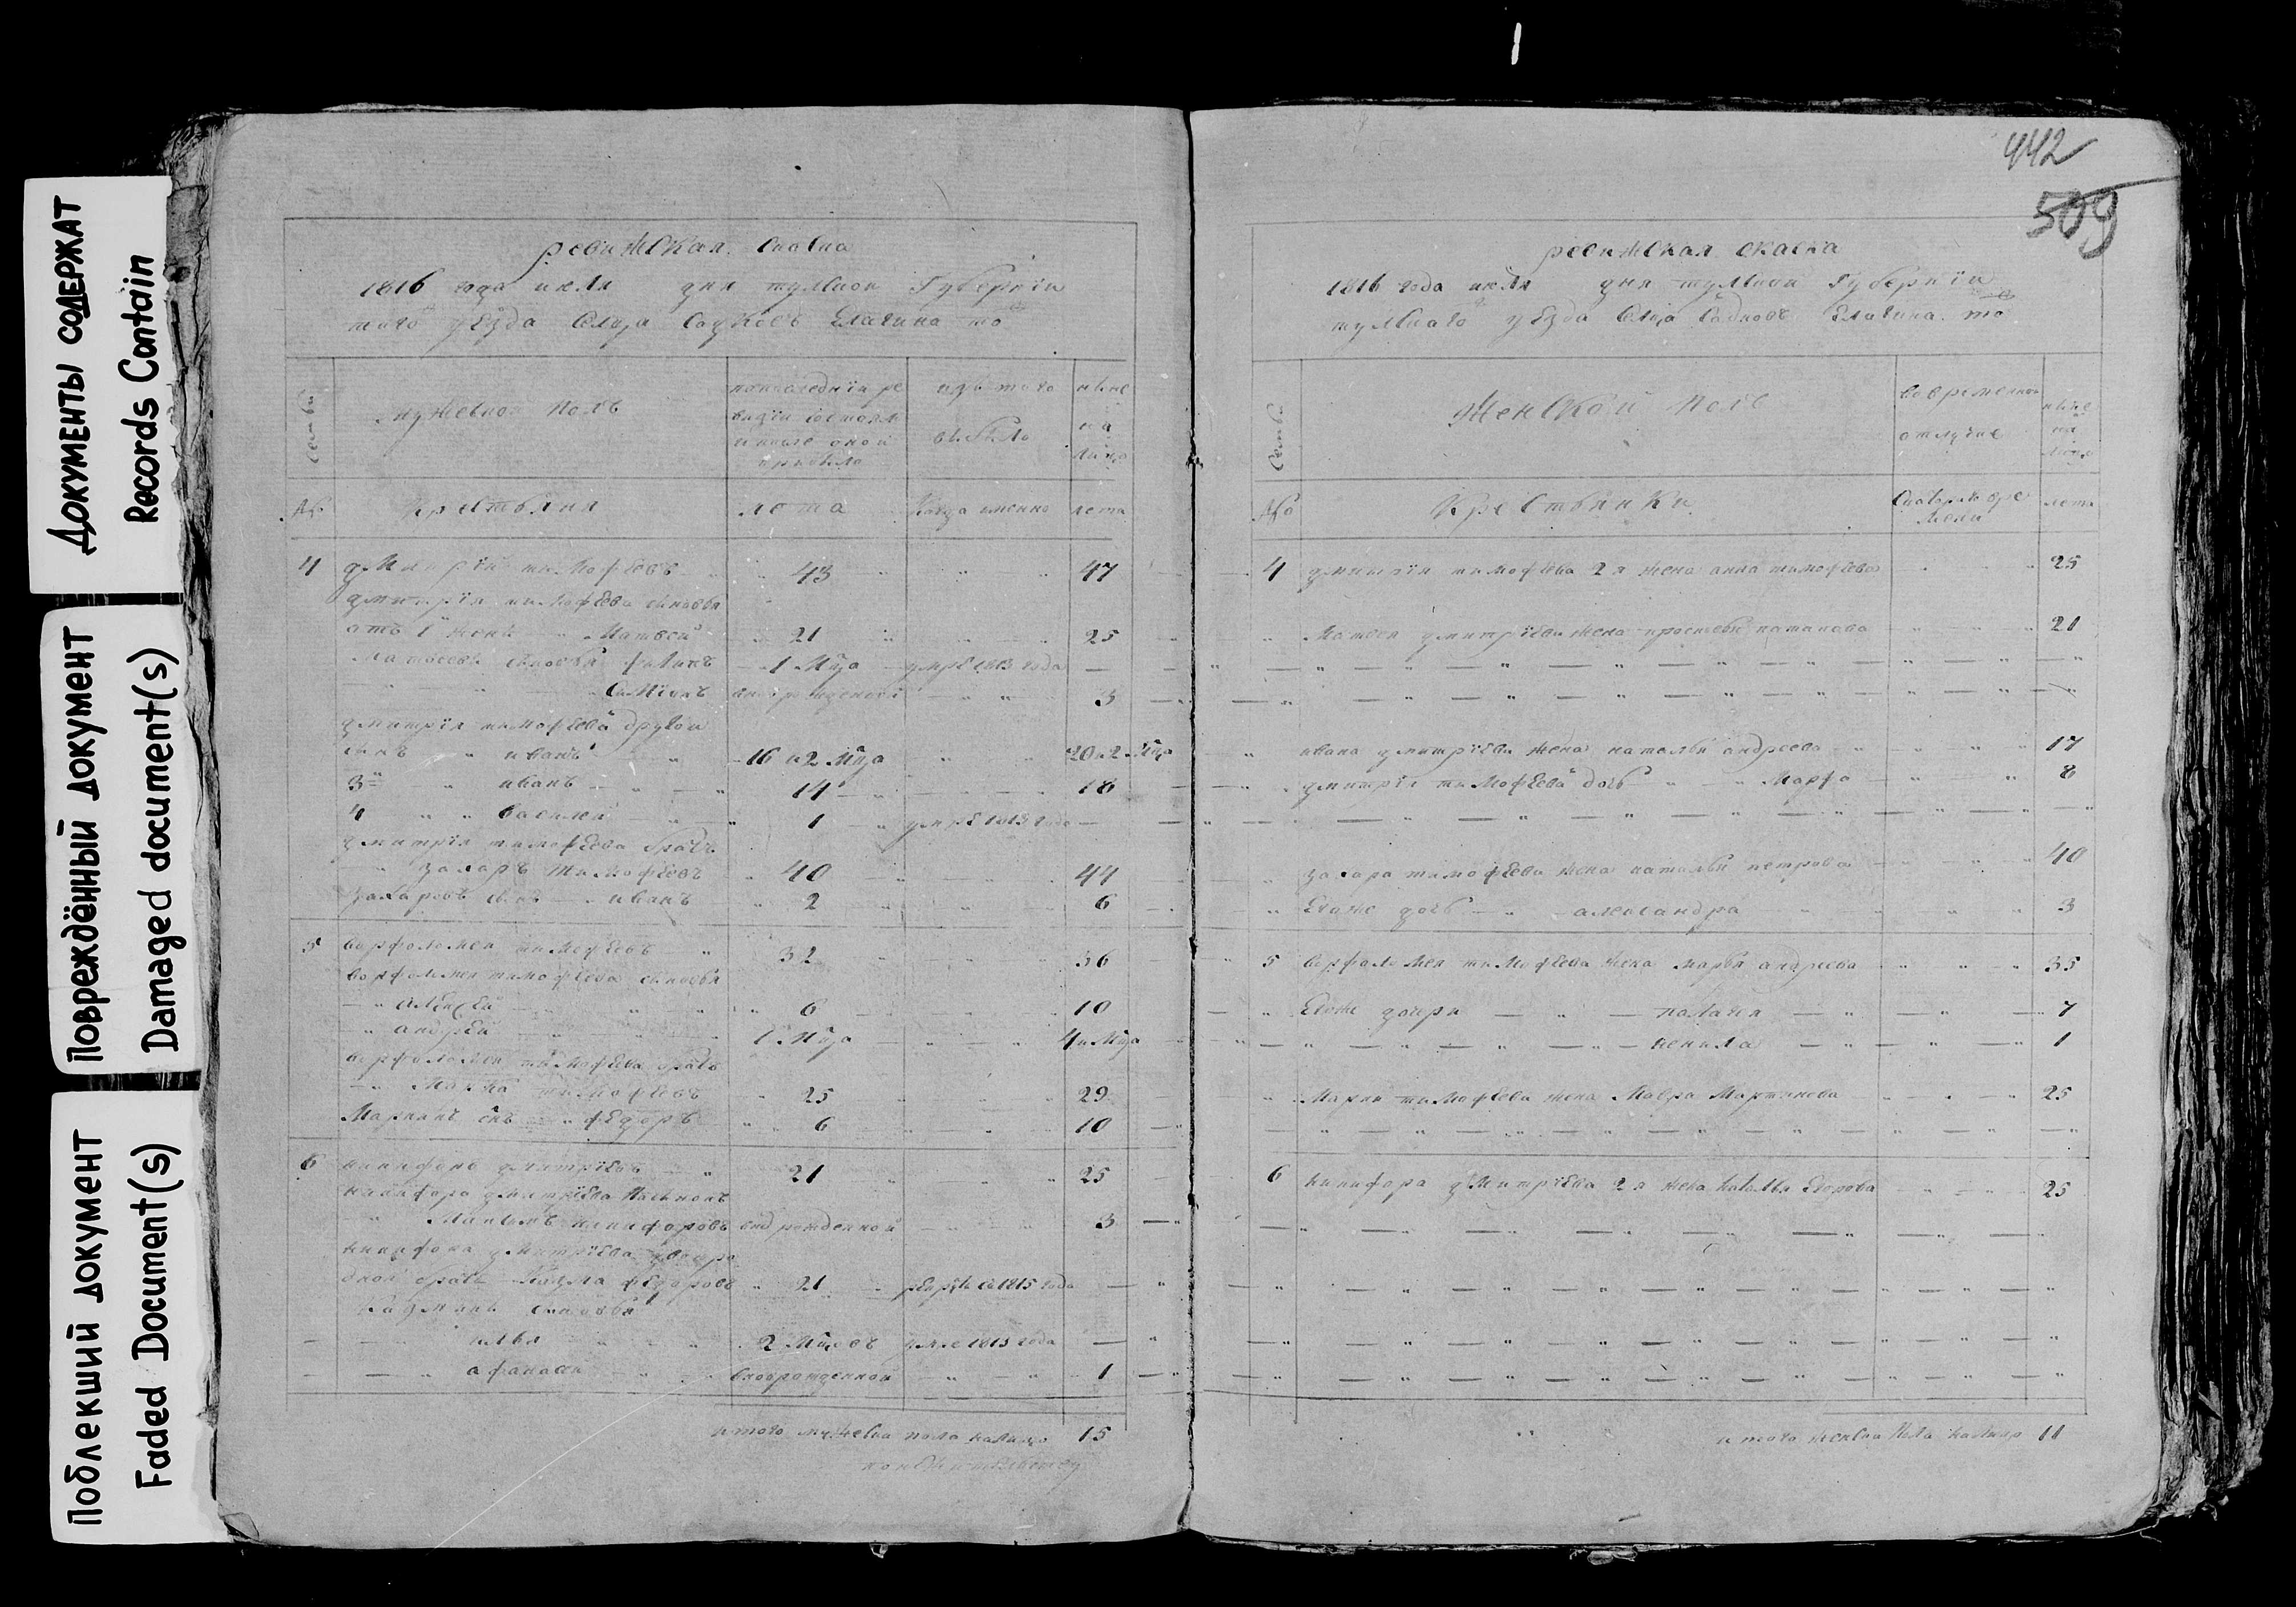 Документы содержат
Records Contain
Повреждённый документ
Damaged document(s)
Поблекший документ
Faded Document(s)
442
509
ревижская скаска
1816 года июля дня тульской губернїи
того уезда селца Елагина то
Семьи
мужескои полъ
по последнїи ре
визїи состояло
и после оной
прибыло
изъ того
выбыло
ныне
на
лицо
№
Крестьяня
лета
Когда именно
лета
4 дмитрїй тимофеевъ 43 47
дмитрїя тимофеева сыновья
отъ 1 жены Матвей 21 25
Матвеевы сыновья 1 Мца умре 1813 года
Симїонъ новорожденной 3
дмитрїя тимофеева другой
сынъ иванъ 16 и 2 Мца 20 и 2 Мца
3й иванъ 14 18
4 василей 1 умре 1813 года
дмитрїя тимофеева братъ
захаръ тимофеевъ 40 44
захаровъ сынъ иванъ 2 6
5 варфоломей тимофеевъ 32 36
варфоломея тимофеева сыновья
алексей 6 10
андрей 1 Мца 4 и Мца
варфоломея тимофеева братъ
Марка тимофеевъ 25 29
Маркинъ снъ федоръ 6 10
6 никифоръ дмитрїевъ 21 25
никифора дмитрїева
никифоровъ новорожденной 3
никифора дмитрїева двоюро
дной братъ Козма федоровъ 21 рекруты 1815 года
Козмины сыновья
илья 2 Мцовъ умре 1813 года
афанасей новорожденной 1
итого мужеска пола налицо 15
ревижская скаска
1816 года июля дня тульской губернїи
тульскаго уезда селца Елагина то
Семьи
Женскои полъ
во временной
отлучке
ныне
на
лицо
№
Крестьянки
С котораго вре
мени
лета
4 дмитрїя тимофеева 2я жена анна тимофеева 25
Матвея дмитрїева жена прасковья 21
ивана дмитрїева жена наталья андреева 17
дмитрїя тимофеева дочь Марфа 8
захара тимофеева жена наталья петрова 40
Егоже дочь александра 3
5 варфоломея тимофеева жена марья андреева 35
Егоже дочери палагея 7
ненила 1
Марки тимофеева жена Мавра Мартинова 25
6 никифора дмитрїева 2я жена наталья Егорова 25
итого женска пола налицо 11